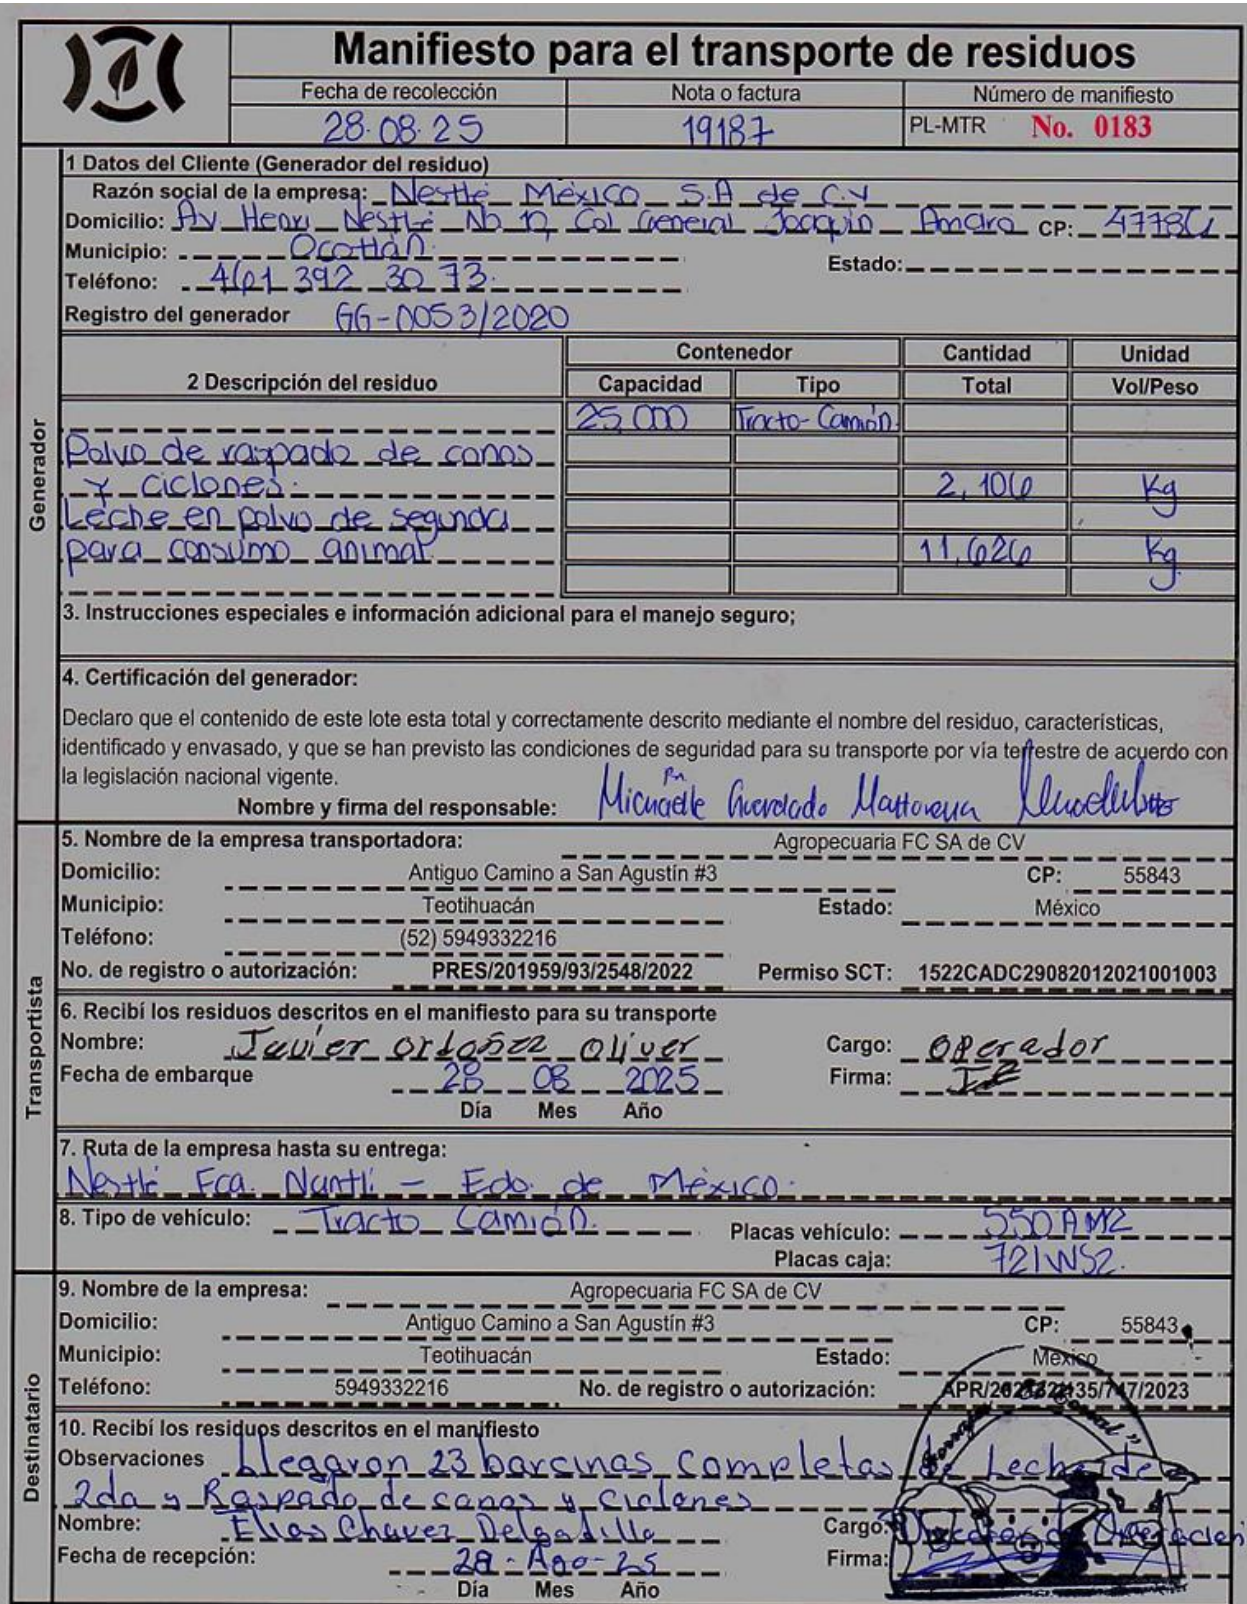 Manifiesto para el transporte de residuos
Fecha de recolección Nota o factura Número de manifiesto
28·08·25 19187 PL-MTR No. 0183
1 Datos del Cliente (Generador del residuo)
Razón social de la empresa: Nestlé México S.A de C.V
Domicilio: Av. Henri Nestlé No 12, Col General Joaquín Amaro CP: 47786
Municipio: Ocotlán.
Estado:
Teléfono: 461 392 30 73.
Registro del generador GG-0053/2020
Contenedor Cantidad Unidad
2 Descripción del residuo Capacidad Tipo Total Vol/Peso
25,000 Tracto-Camión.
Polvo de raspado de conos
y ciclones. 2,106 Kg
Leche en polvo de segunda
para consumo animal. 11,626 Kg.
3. Instrucciones especiales e información adicional para el manejo seguro;
4. Certificación del generador:
Declaro que el contenido de este lote esta total y correctamente descrito mediante el nombre del residuo, características,
identificado y envasado, y que se han previsto las condiciones de seguridad para su transporte por vía terrestre de acuerdo con
la legislación nacional vigente.
Nombre y firma del responsable:
5. Nombre de la empresa transportadora: Agropecuaria FC SA de CV
Domicilio: Antiguo Camino a San Agustín #3 CP: 55843
Municipio: Teotihuacán Estado: México
Teléfono: (52) 5949332216
No. de registro o autorización: PRES/201959/93/2548/2022 Permiso SCT: 1522CADC29082012021001003
6. Recibí los residuos descritos en el manifiesto para su transporte
Nombre: Javier Ordoñez Oliver Cargo: Operador
Fecha de embarque 28 08 2025 Firma:
Día Mes Año
7. Ruta de la empresa hasta su entrega:
Nestlé Fca. Nantli - Edo. de México.
8. Tipo de vehículo: Tracto Camión.
Placas vehículo: 550AM2
Placas caja: 721WS2.
9. Nombre de la empresa: Agropecuaria FC SA de CV
Domicilio: Antiguo Camino a San Agustín #3 CP: 55843
Municipio: Teotihuacán Estado: México
Teléfono: 5949332216 No. de registro o autorización:
10. Recibí los residuos descritos en el manifiesto
Observaciones Llegaron 23 barcinas completas de Leche de
2da y Raspado de conos y Ciclones
Nombre: Elias Chavez Delgadillo Cargo: Director de Operacion
Fecha de recepción: 28-Ago-25 Firma:
Día Mes Año
Generador
Transportista
Destinatario